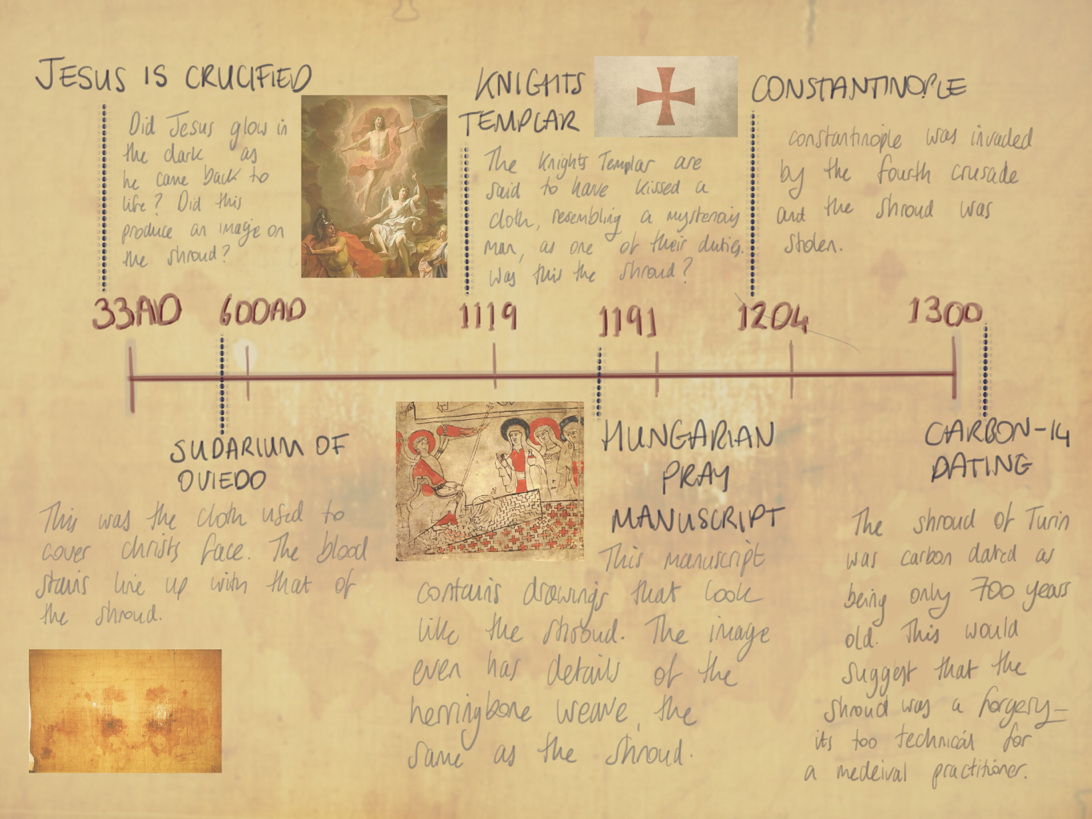 JESUS IS CRUCIFIED
Did Jesus glow in
the dark as
he came back to
life? Did this
produce an image on
the shroud?
KNIGHTS
TEMPLAR
The Knights Templar are
said to have kissed a
cloth, resembling a mysterious
man, as one of their duties.
Was this the shroud?
CONSTANTINOPLE
constantinople was invaded
by the fourth crusade
and the shroud was
stolen.
33AD
600AD
1119
1191
1204
1300
SUDARIUM OF
OVIEDO
This was the cloth used to
cover christs face. The blood
stains line up with that of
the shroud.
HUNGARIAN
PRAY
MANUSCRIPT
This manuscript
contains drawings that look
like the shroud. The image
even has details of the
herringbone weave, the
same as the shroud.
CARBON-14
DATING
The shroud of Turin
was carbon dated as
being only 700 years
old. This would
suggest that the
shroud was a forgery—
its too technical for
a medeival practitioner.